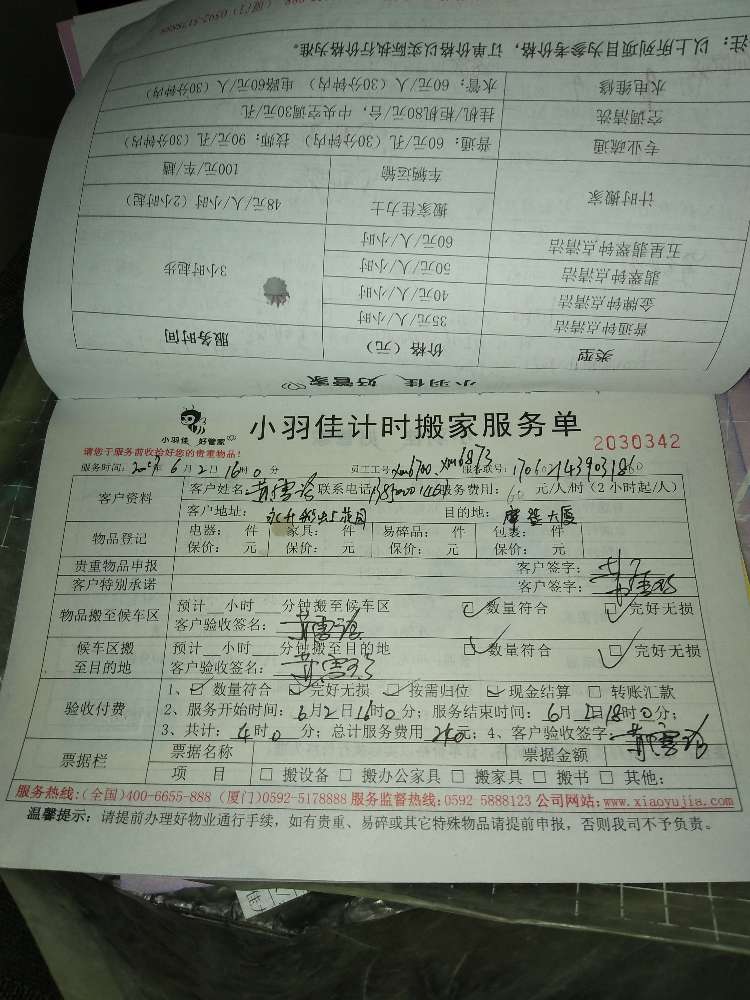 注：以上所列项目为参考价格，订单价格以实际执行价格为准。
水电维修 水管：60元/人（30分钟内） 电路60元/人（30分钟内）
空调清洗 挂机/柜机80元/台，中央空调30元/孔
专业疏通 普通：60元/孔（30分钟内） 技师：90元/孔（30分钟内）
计时搬家 车辆运输 100元/车/趟
搬家佳力士 48元/人/小时（2小时起）
五星翡翠钟点清洁 60元/人/小时
翡翠钟点清洁 50元/人/小时 3小时起步
金牌钟点清洁 40元/人/小时
普通钟点清洁 35元/人/小时
类型 价格（元） 服务时间
小羽佳 好管家
小羽佳 好管家
小羽佳计时搬家服务单 2030342
请您于服务前收拾好您的贵重物品！
服务时间： 6月2日16时0分 员工工号 服务联号：
客户资料 客户姓名： 联系电话 服务费用：60元/人/时（2小时起/人）
客户地址： 目的地： 大厦
物品登记 电器： 件 家具： 件 易碎品： 件 包裹： 件
保价： 元 保价： 元 保价： 元 保价： 元
贵重物品申报 客户签字：
客户特别承诺 客户签字：
物品搬至候车区 预计__小时__分钟搬至候车区 数量符合 完好无损
客户验收签名：
候车区搬至目的地 预计__小时__分钟搬至目的地 数量符合 完好无损
客户验收签名：
验收付费 1、数量符合 完好无损 按需归位 现金结算 转账汇款
2、服务开始时间：6月2日16时0分；服务结束时间：6月2日18时0分；
3、共计：4时0分；总计服务费用240元；4、客户验收签字：
票据栏 票据名称 票据金额
项 目 搬设备 搬办公家具 搬家具 搬书 其他：
服务热线：(全国)400-6655-888 (厦门)0592-5178888 服务监督热线：0592 5888123 公司网站：www.xiaoyujia.com
温馨提示：请提前办理好物业通行手续，如有贵重、易碎或其它特殊物品请提前申报，否则我司不予负责。